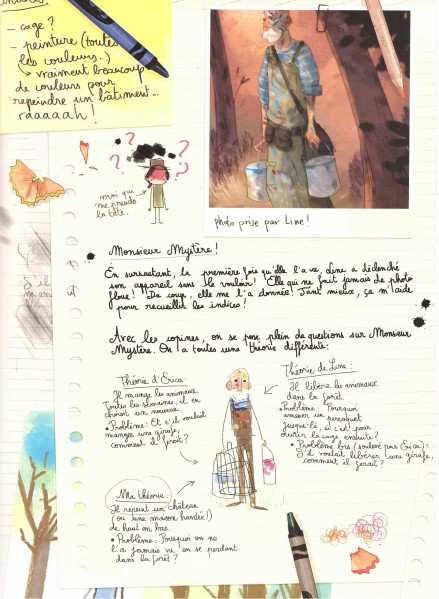 - cage ?
- peinture (toutes
les couleurs..)
↳ vraiment beaucoup
de couleurs pour
repeindre un bâtiment...
raaaaah !
? ? ? ? ?
moi qui
me prends
la tête.
Photo prise par Line !
Monsieur Mystère !
En sursautant, la première fois qu'elle l'a vu, Line a déclenché
son appareil sans le vouloir ! Elle qui ne fait jamais de photo
floue ! Du coup, elle me l'a donnée ! Tant mieux, ça m'aide
pour recueillir les indices !
Avec les copines, on se pose plein de questions sur Monsieur
Mystère. On a toutes une théorie différente.
Théorie d'Erica :
Il mange les animaux.
Toutes les semaines, il en
choisit un nouveau.
• Problème : Et s'il voulait
manger une girafe,
comment il ferait ?
Théorie de Line :
Il libère les animaux
dans la forêt.
• Problème : Pourquoi
amener un perroquet
jusque-là, si c'est pour
ouvrir la cage ensuite ?
• Problème bis (soulevé par Erica) :
S'il voulait libérer une girafe,
comment il ferait ?
Ma théorie :
Il repeint un château
(ou une maison hantée !)
de haut en bas.
• Problème : Pourquoi on ne
l'a jamais vu, en se perdant
dans la forêt ?